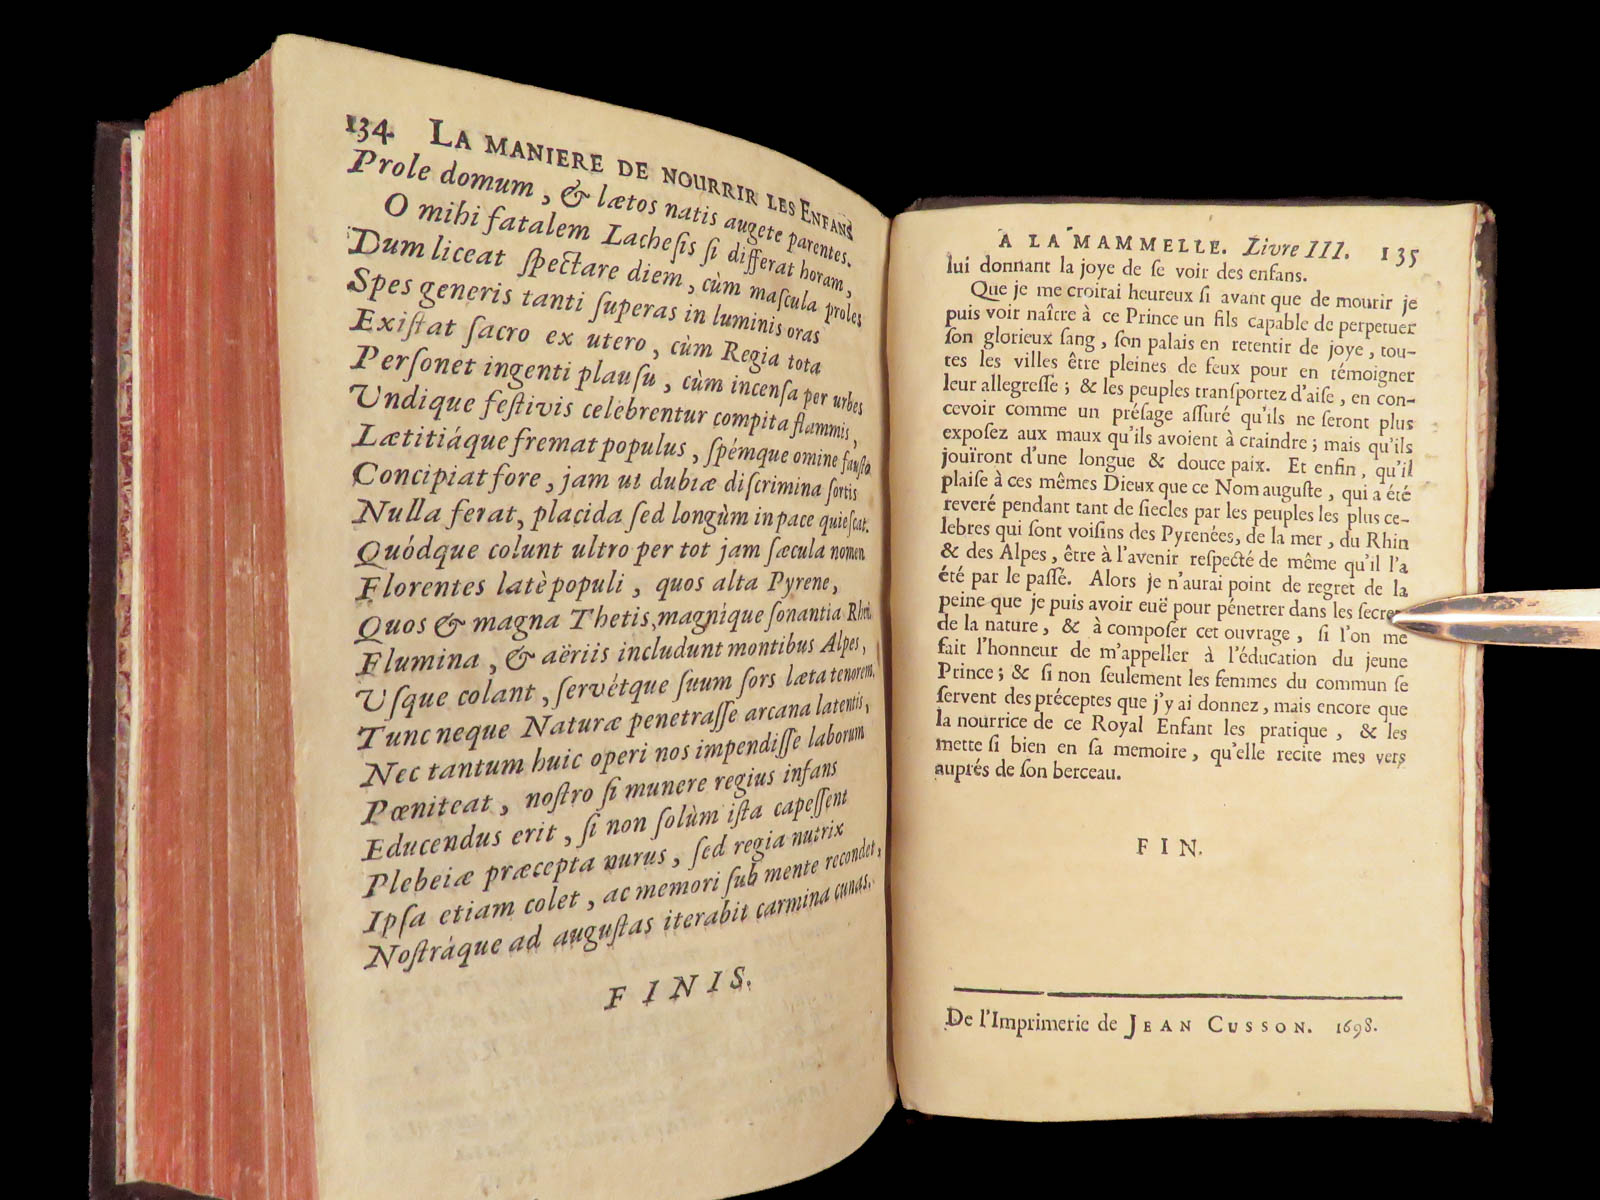 134. LA MANIERE DE NOURRIR LES ENFANS
Prole domum, & lætos natis augete parentes.
O mihi fatalem Lacheſis ſi differat horam,
Dum liceat ſpectare diem, cùm maſcula proles
Spes generis tanti ſuperas in luminis oras
Exiſtat ſacro ex utero, cùm Regia tota
Perſonet ingenti plauſu, cùm incenſa per urbes
Undique feſtivis celebrentur compita flammis,
Lætitiáque fremat populus, ſpémque omine fauſto
Concipiat fore, jam ut dubiæ diſcrimina ſortis
Nulla ferat, placida ſed longùm in pace quieſcat.
Quódque colunt ultro per tot jam ſæcula nomen
Florentes latè populi, quos alta Pyrene,
Quos & magna Thetis, magníque ſonantia Rheni
Flumina, & aëriis includunt montibus Alpes,
Uſque colant, ſervétque ſuum ſors læta tenorem.
Tunc neque Naturæ penetraſſe arcana latentis,
Nec tantum huic operi nos impendiſſe laborum
Pœniteat, noſtro ſi munere regius infans
Educendus erit, ſi non ſolùm iſta capeſſent
Plebeiæ præcepta nurus, ſed regia nutrix
Ipſa etiam colet, ac memori ſub mente recondet,
Noſtráque ad auguſtas iterabit carmina cunas.
FINIS.
A LA MAMMELLE. Livre III. 135
lui donnant la joye de ſe voir des enfans.
Que je me croirai heureux ſi avant que de mourir je
puis voir naître à ce Prince un fils capable de perpetuer
ſon glorieux ſang, ſon palais en retentir de joye, tou-
tes les villes être pleines de feux pour en témoigner
leur allegreſſe; & les peuples tranſportez d'aiſe, en con-
cevoir comme un préſage aſſuré qu'ils ne ſeront plus
expoſez aux maux qu'ils avoient à craindre; mais qu'ils
jouïront d'une longue & douce paix. Et enfin, qu'il
plaiſe à ces mêmes Dieux que ce Nom auguſte, qui a été
reveré pendant tant de ſiecles par les peuples les plus ce-
lebres qui ſont voiſins des Pyrenées, de la mer, du Rhin
& des Alpes, être à l'avenir reſpecté de même qu'il l'a
été par le paſſé. Alors je n'aurai point de regret de la
peine que je puis avoir euë pour pénetrer dans les ſecre
de la nature, & à compoſer cet ouvrage, ſi l'on me
fait l'honneur de m'appeller à l'éducation du jeune
Prince; & ſi non ſeulement les femmes du commun ſe
ſervent des préceptes que j'y ai donnez, mais encore que
la nourrice de ce Royal Enfant les pratique, & les
mette ſi bien en ſa memoire, qu'elle recite mes vers
auprés de ſon berceau.
FIN.
De l'Imprimerie de JEAN CUSSON. 1698.